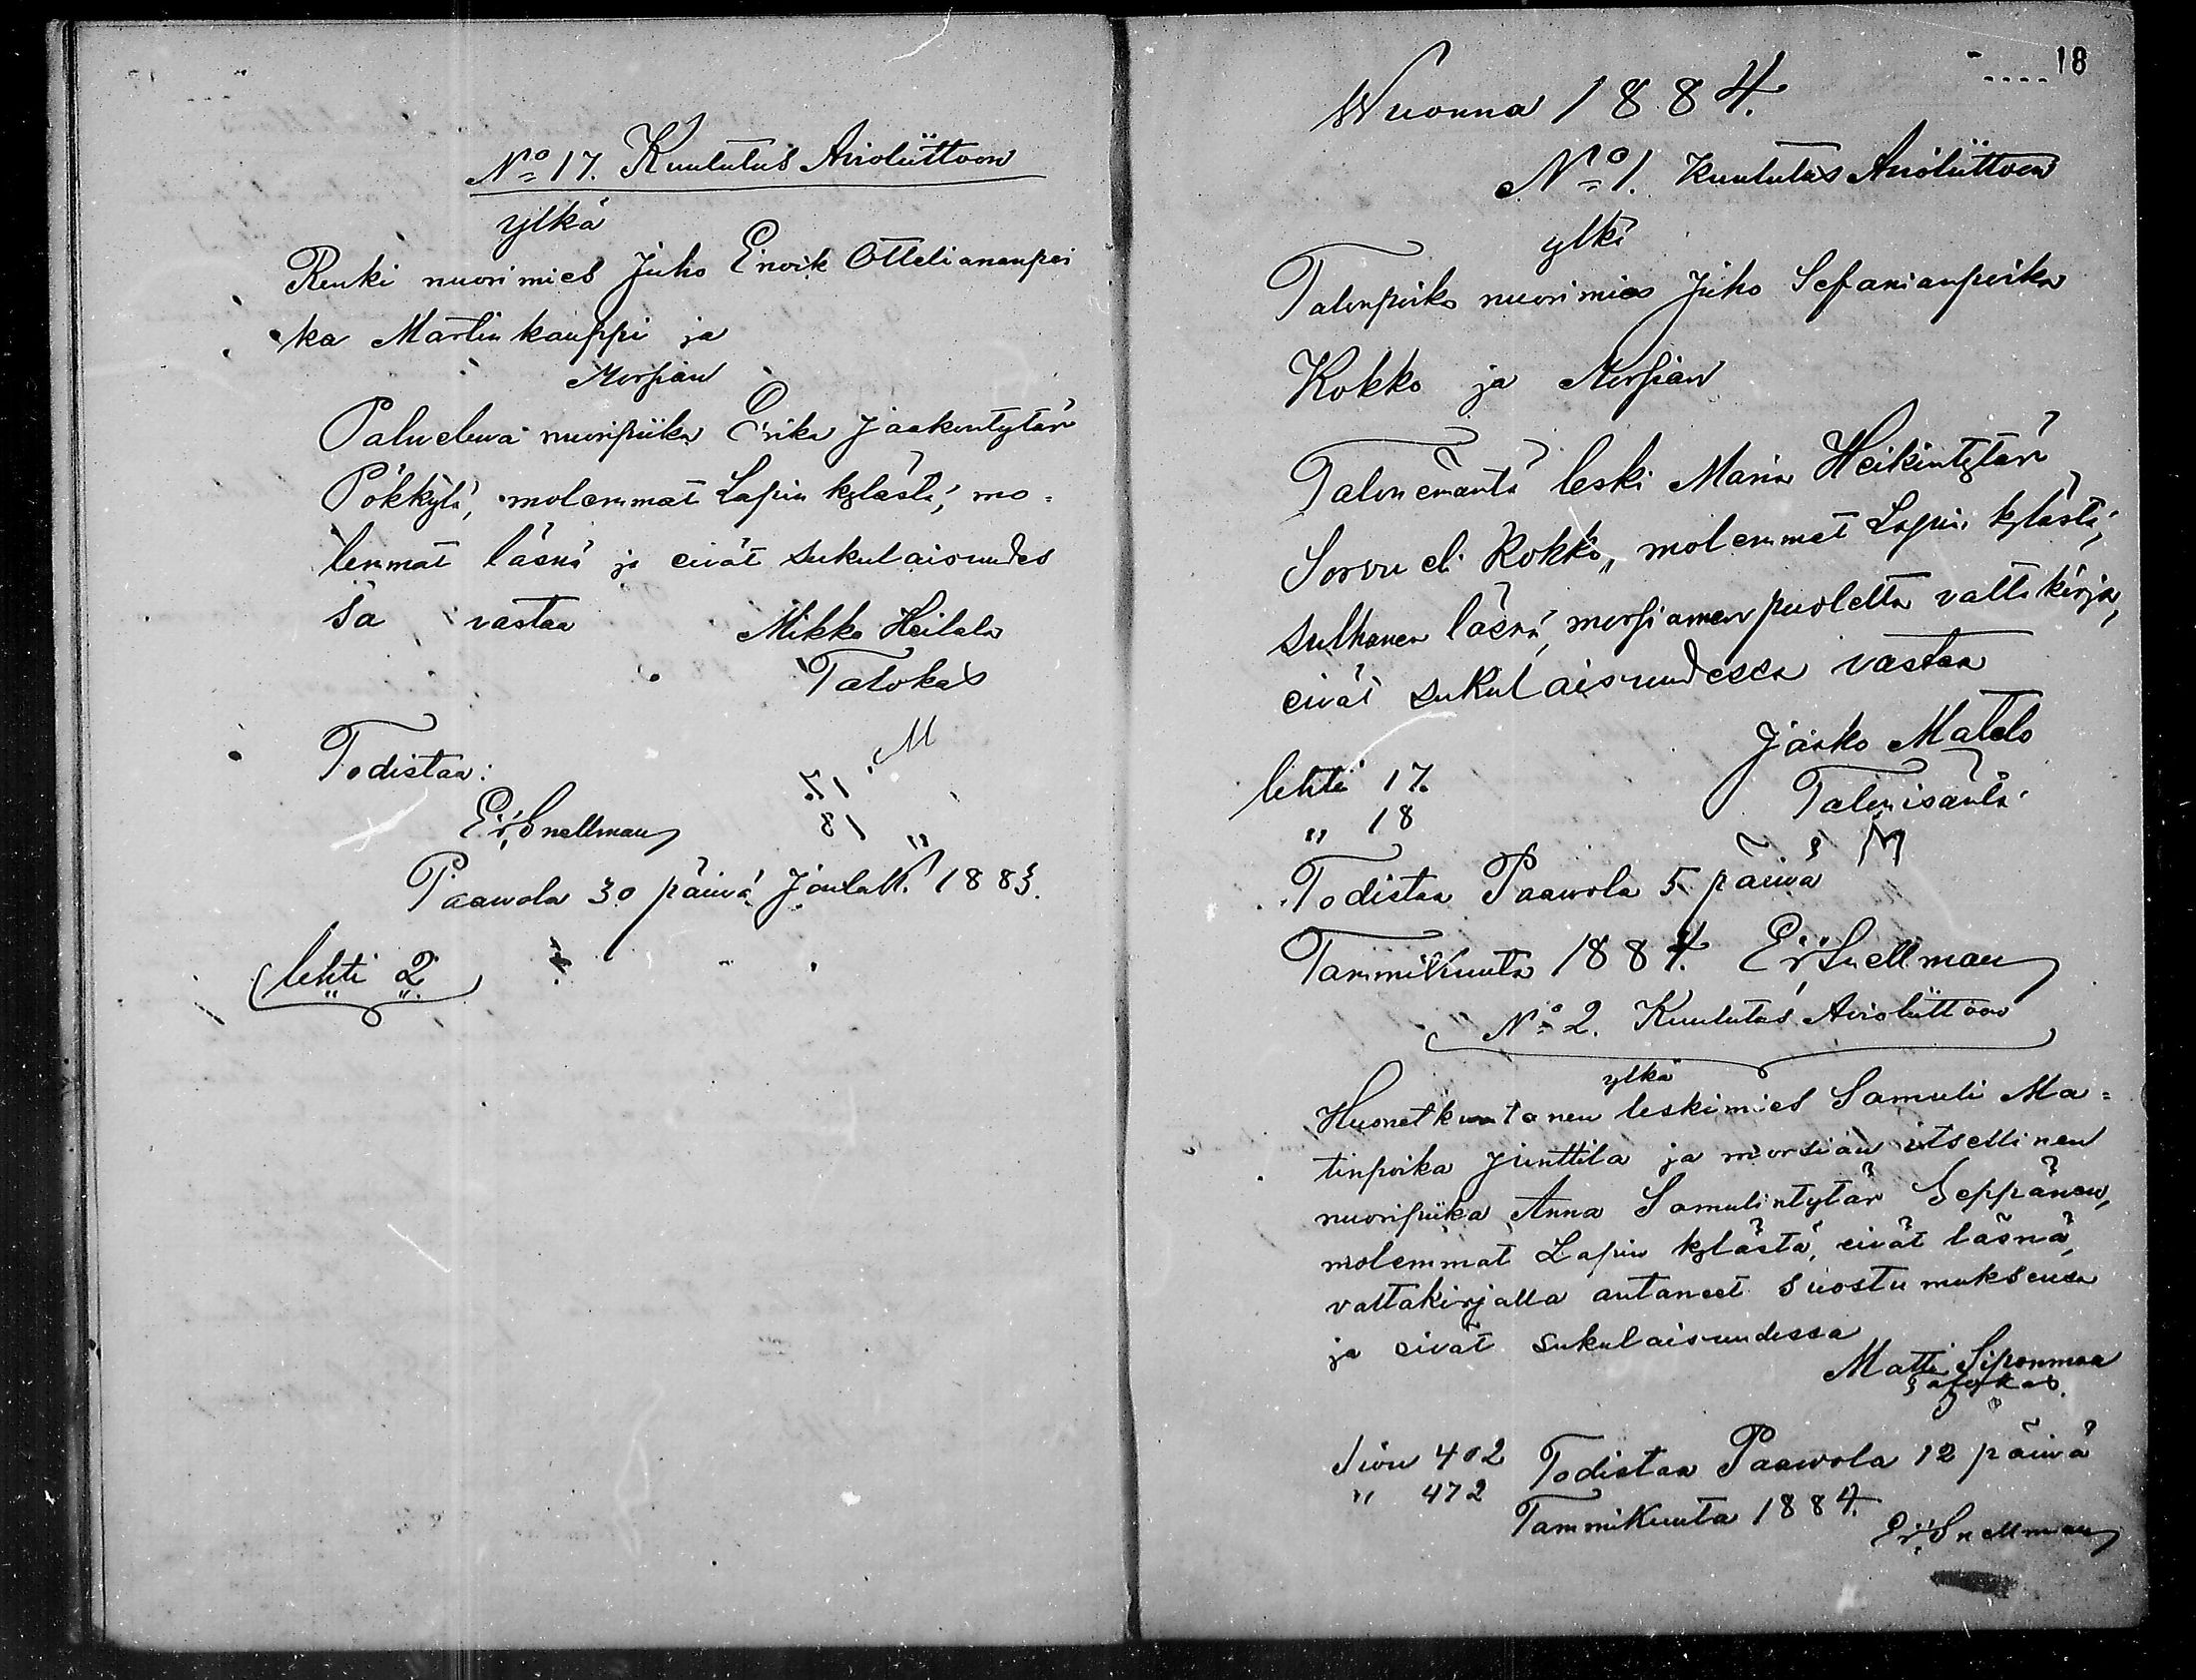 No 17. Kuulutus Avioliittoon
ylkä
Renki nuorimies Juho Enrik Ottelianaupoi
ka Martinkauppi ja
Morsian
Palveleva nuoripiika Erika Jaakontytär
Pökkylä, molemmat Lapin kylästä, mo-
lemmat läsnä ja eivät sukulaisuudes
sa vastaa Mikko Heilala
Talokas
Todistaa:
Er. Snellman
Paawola 30 päivä Jouluk. 1883.
lehti 2
18
Wuonna 1884.
No 1. Kuulutus Avioliittoon
ylkä
Talonpoika nuorimies Juho Sefanianpoika
Kokko ja Morsian
Talon emäntä leski Maria Heikintytär
Sorvu eli Kokko, molemmat Lapin kylästä,
sulhanen läsnä, morsiamen puoletta valtakirja,
eivät sukulaisuudessa vastaa
Jaako Matelo
lehti 17. Talonisäntä
" 18
Todistaa Paawola 5 päivä
Tammikuuta 1884. Er. Snellman
No 2. Kuulutus Avioliittoon
ylkä
Huonetkuntanen leskimies Samuli Ma-
tinpoika Junttila ja morsian itsellinen
nuoripiika Anna Samulintytär Seppänen,
molemmat Lapin kylästä, eivät läsnä,
valtakirjalla antaneet suostumuksensa
ja eivät sukulaisuudessa
Matti Siponmaa
Talokas.
Sivu 402 Todistaa Paawola 12 päivä
" 472 Tammikuuta 1884.
Er. Snellman